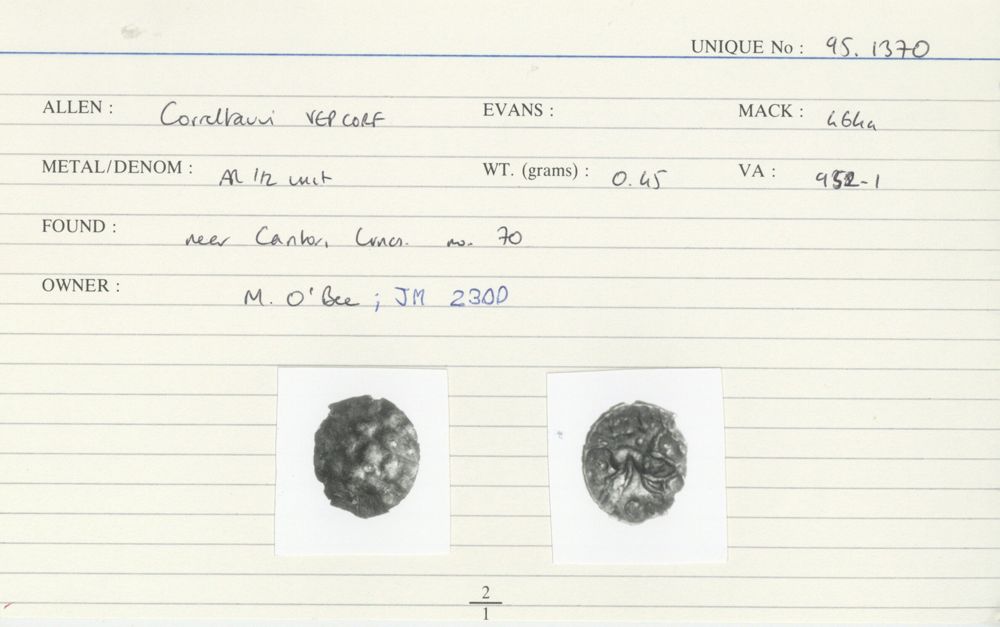 UNIQUE No : 95. 1370
ALLEN : Correltauvi VEP CORF EVANS : MACK : 464a
METAL/DENOM : AR 1/2 unit WT. (grams) : 0.45 VA : 952-1
FOUND : near Lincs. no. 70
OWNER : M. O'Bee ; JM 230D
2
1